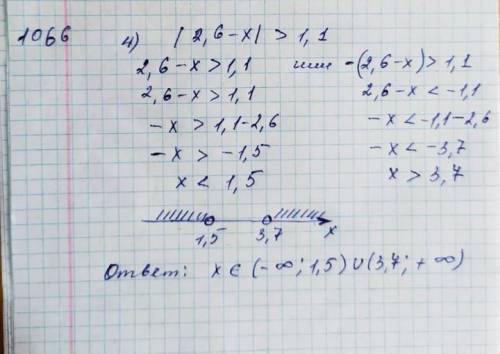 1066 4) | 2,6-x| > 1,1
2,6-x>1,1 или -(2,6-x)>1,1
2,6-x>1,1 2,6-x<-1,1
-x > 1,1-2,6 -x<-1,1-2,6
-x > -1,5 -x<-3,7
x < 1,5 x > 3,7
1,5 3,7 x
Ответ: x ∈ (-∞; 1,5) ∪ (3,7; +∞)